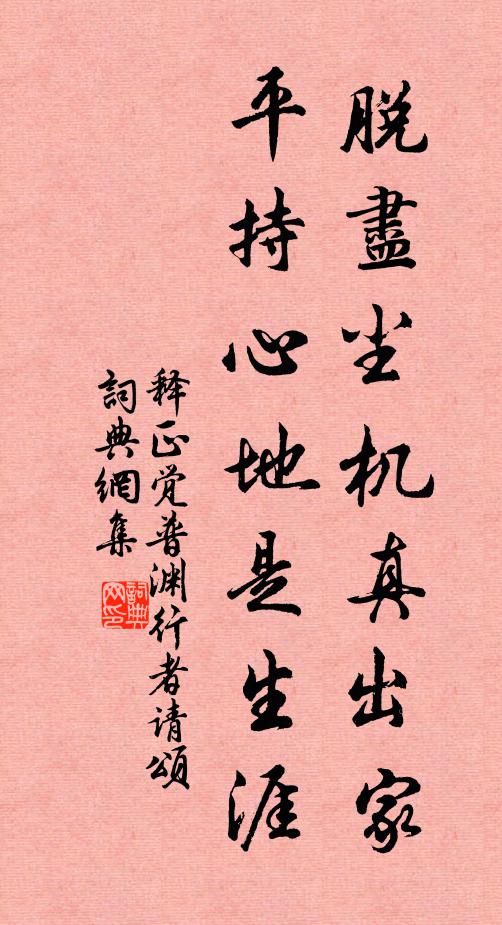 脫盡尘机真出家
平持心地是生涯
释正觉普渊行者请頌
詞典網集
詞典
网印